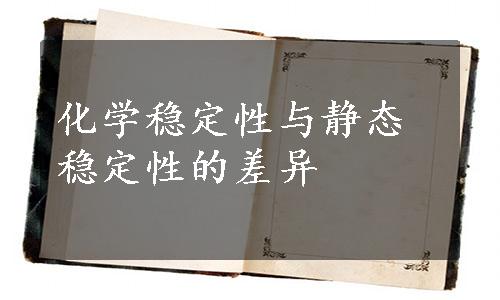 化学稳定性与静态
稳定性的差异